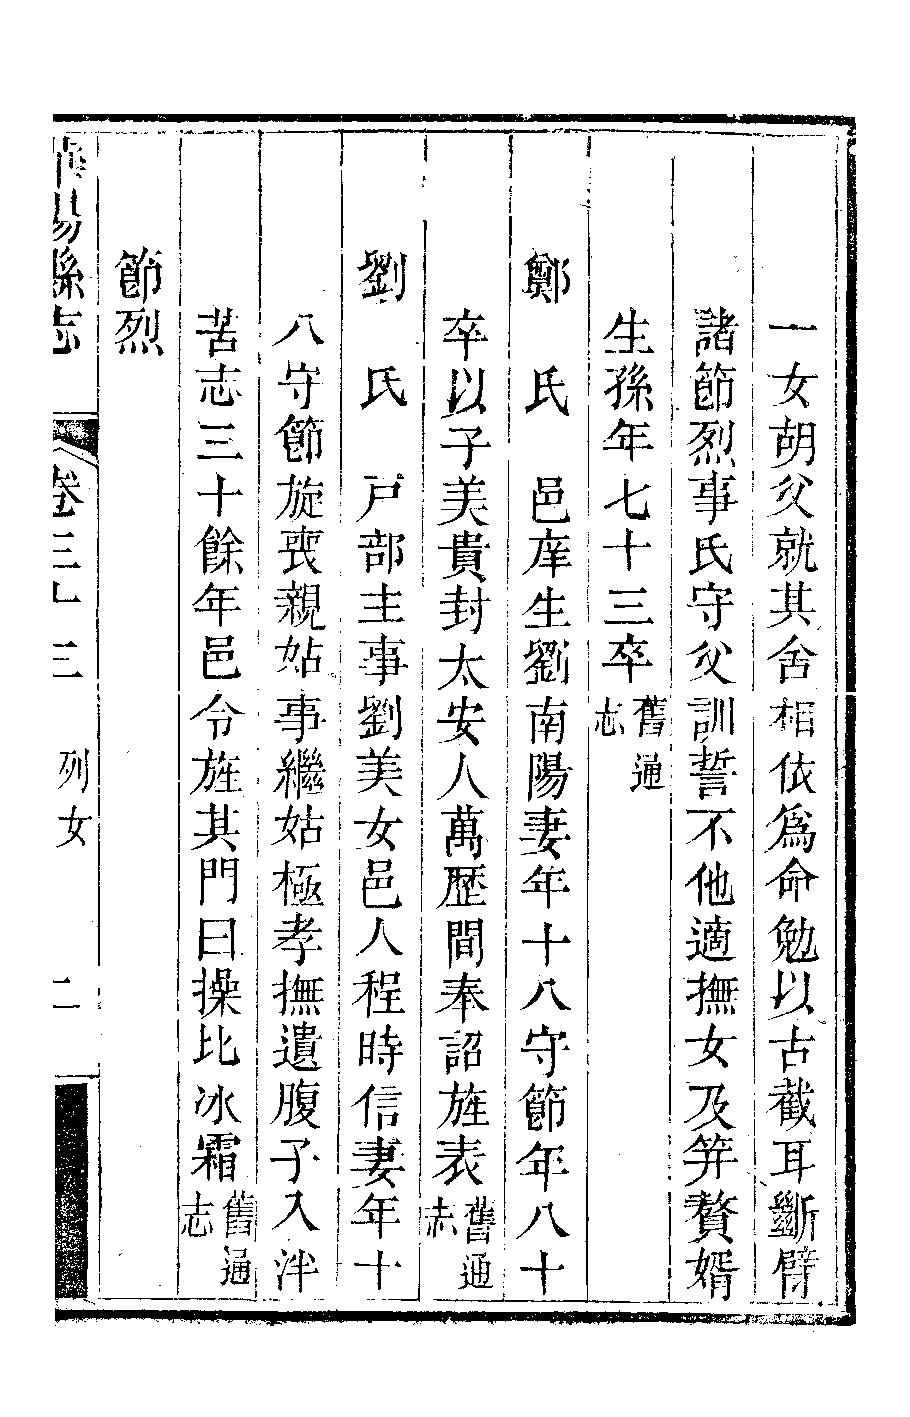 一女胡父就其舍相依爲命勉以古截耳斷臂
諸節烈事氏守父訓誓不他適撫女及笄贅婿
生孫年七十三卒舊通志
鄭氏 邑庠生劉南陽妻年十八守節年八十
卒以子美貴封太安人萬歷間奉詔旌表舊通志
劉氏 戸部主事劉美女邑人程時信妻年十
八守節旋喪親姑事繼姑極孝撫遺腹子入泮
苦志三十餘年邑令旌其門曰操比冰霜舊通志
節烈
陽縣志 卷三十三 列女 二